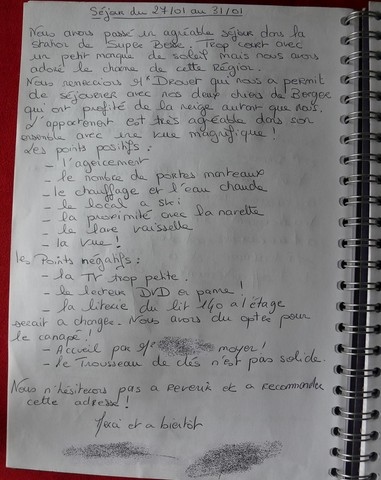 Séjour du 27/01 au 31/01
Nous avons passé un agréable séjour dans la
station de Super Besse. Trop court avec
un petit manque de soleil mais nous avons
adoré le charme de cette Région.
Nous remercions Mr Drouer qui nous a permit
de séjourner avec nos deux chiens de Berger
qui ont profité de la neige autant que nous.
L'appartement est très agréable dans son
ensemble avec une vue magnifique !
Les points positifs :
- l'agencement
- le nombre de portes manteaux
- le chauffage et l'eau chaude
- le local a ski
- la proximité avec la navette
- le lave vaisselle
- la vue !
Les Points négatifs :
- la TV trop petite.
- le lecteur DVD en panne !
- la literie du lit 140 a l'étage
serait a changée. Nous avons du opter pour
le canapé !
- Accueil par Mr moyen !
- le Trousseau de clés n'est pas solide.
Nous n'hésiterons pas a revenir et a recommander
cette adresse !
Merci et a bientôt